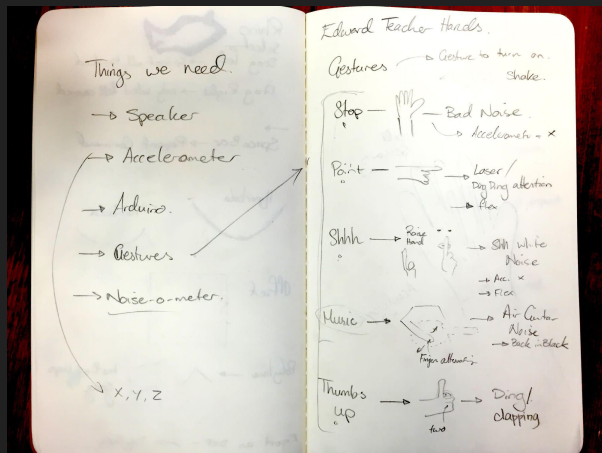 Things we need.
→ Speaker
→ Accelerometer
→ Arduino.
→ Gestures
→ Noise-o-meter.
X, Y, Z
Edward Teacher Hands.
Gestures → Gesture to turn on.
Shake.
Stop — Bad Noise.
→ Accelerometer x
Point → Laser/
Ding Ding attention
→ flex
Shhh → Raise Hand → Shh white
Noise
→ Acc. x
→ Flex
Music → Air Guitar
Noise
→ Back in Black
Finger alternating
Thumbs up → Ding/
clapping
two